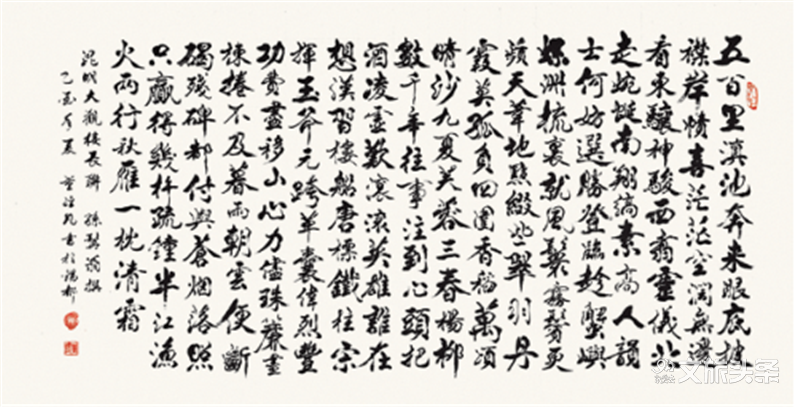 五百里滇池奔来眼底披
襟岸幘喜茫茫空闊無邊
看東驤神駿西翥靈儀北
走蜿蜒南翔縞素高人韻
士何妨選勝登臨趁蟹嶼
螺洲梳裹就風鬟霧鬢更
蘋天葦地點綴些翠羽丹
霞莫孤負四圍香稻萬頃
晴沙九夏芙蓉三春楊柳
數千年往事注到心頭把
酒凌虛歎滾滾英雄誰在
想漢習樓船唐標鐵柱宋
揮玉斧元跨革囊偉烈豐
功費盡移山心力儘珠簾畫
棟捲不及暮雨朝雲便斷
碣殘碑都付與蒼烟落照
只贏得幾杵疏鐘半江漁
火兩行秋雁一枕清霜
昆明大觀樓長聯 孫髯翁撰
乙 夏 書於 都
头条